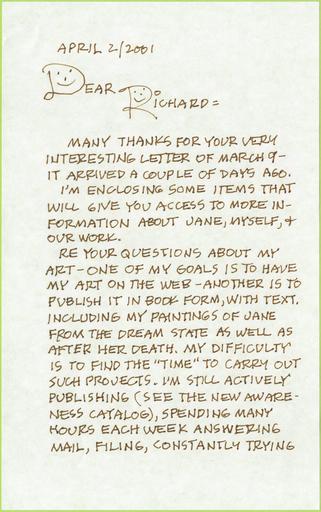 APRIL 2/2001
DEAR RICHARD =
MANY THANKS FOR YOUR VERY
INTERESTING LETTER OF MARCH 9-
IT ARRIVED A COUPLE OF DAYS AGO.
I'M ENCLOSING SOME ITEMS THAT
WILL GIVE YOU ACCESS TO MORE IN-
FORMATION ABOUT JANE, MYSELF, &
OUR WORK.
RE YOUR QUESTIONS ABOUT MY
ART-ONE OF MY GOALS IS TO HAVE
MY ART ON THE WEB-ANOTHER IS TO
PUBLISH IT IN BOOK FORM, WITH TEXT.
INCLUDING MY PAINTINGS OF JANE
FROM THE DREAM STATE AS WELL AS
AFTER HER DEATH. MY DIFFICULTY
IS TO FIND THE "TIME" TO CARRY OUT
SUCH PROJECTS. I'M STILL ACTIVELY
PUBLISHING (SEE THE NEW AWARE-
NESS CATALOG), SPENDING MANY
HOURS EACH WEEK ANSWERING
MAIL, FILING, CONSTANTLY TRYING